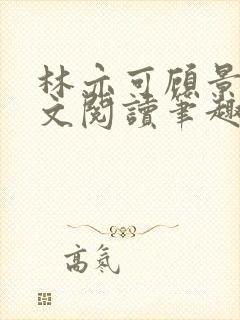 林亦可顾景
文閱讀筆趣
高氣